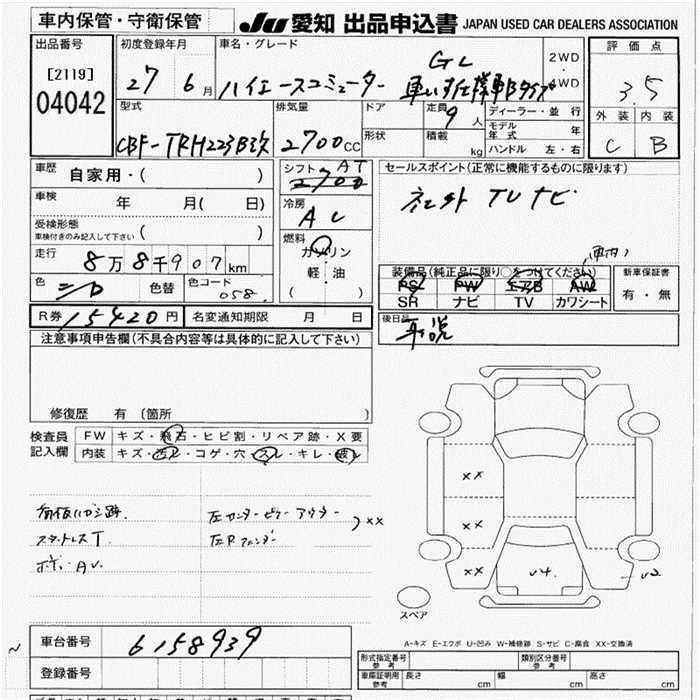 車内保管・守衛保管
JU 愛知 出品申込書 JAPAN USED CAR DEALERS ASSOCIATION
出品番号
[2119]
04042
初度登録年月
27 6月
車名・グレード
ハイエースコミューター
GL
車いす仕様車Bタイプ
2WD
4WD
評価点
3.5
外装 内装
C B
型式
CBF-TRH223B改
排気量
2700CC
ドア
形状
定員
9人
積載 kg
ディーラー・並行
モデル年式 年
ハンドル 左・右
車歴
自家用・( )
車検
年 月( 日)
受検形態
車検付きのみ記入して下さい ( )
走行
8万8千907km
色
色替
色コード
058
シフト AT
2700
冷房
AC
燃料
ガソリン
軽・油
( )
セールスポイント(正常に機能するものに限ります)
社外 TVナビ
装備品(純正品に限り○をつけてください)
PS PW エアB AW
SR ナビ TV カワシート
新車保証書
有・無
後日品
取説
R券 15420円
名変通知期限 月 日
注意事項申告欄(不具合内容等は具体的に記入して下さい)
修復歴 有 (箇所 )
検査員
記入欄
FW キズ・飛石・ヒビ割・リペア跡・X要
内装 キズ・汚レ・コゲ・穴・スレ・キレ・破レ
スタッドレスT
左センターピラーアウター
左Rフェンダー
XX
XX
XX
XX
U4
U2
スペア
A-キズ E-エクボ U-凹み W-補修跡 S-サビ C-腐食 XX-交換済
車台番号
6158939
登録番号
形式指定番号 参考
類別区分番号 参考
車庫証明用 参考
長さ cm
幅 cm
高さ cm